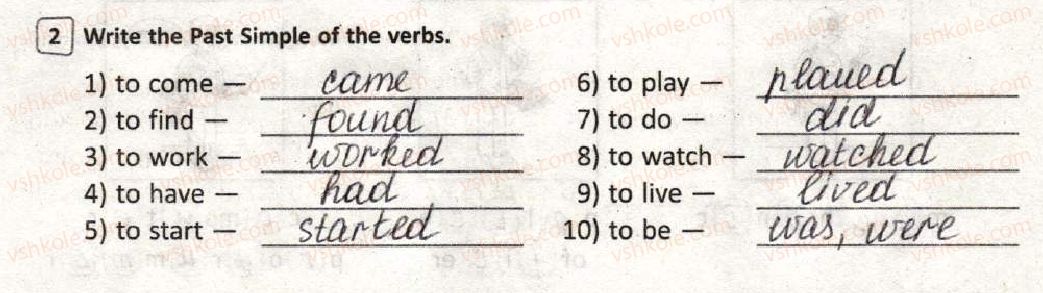 2 Write the Past Simple of the verbs.
1) to come — came
2) to find — found
3) to work — worked
4) to have — had
5) to start — started
6) to play — plaued
7) to do — did
8) to watch — watched
9) to live — lived
10) to be — was, were
vshkole.com